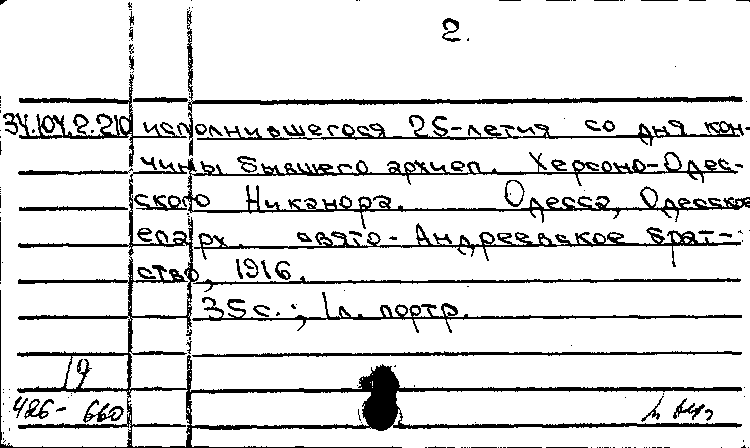 2.
34.104.2.210 исполнившегося 25-летия со дня кон-
чины бывшего архиеп. Херсоно-Одес-
ского Никанора. Одесса, Одесское
епарх. свято-Андреевское брат-
ство, 1916.
35 с.; 1 л. портр.
19
426-660